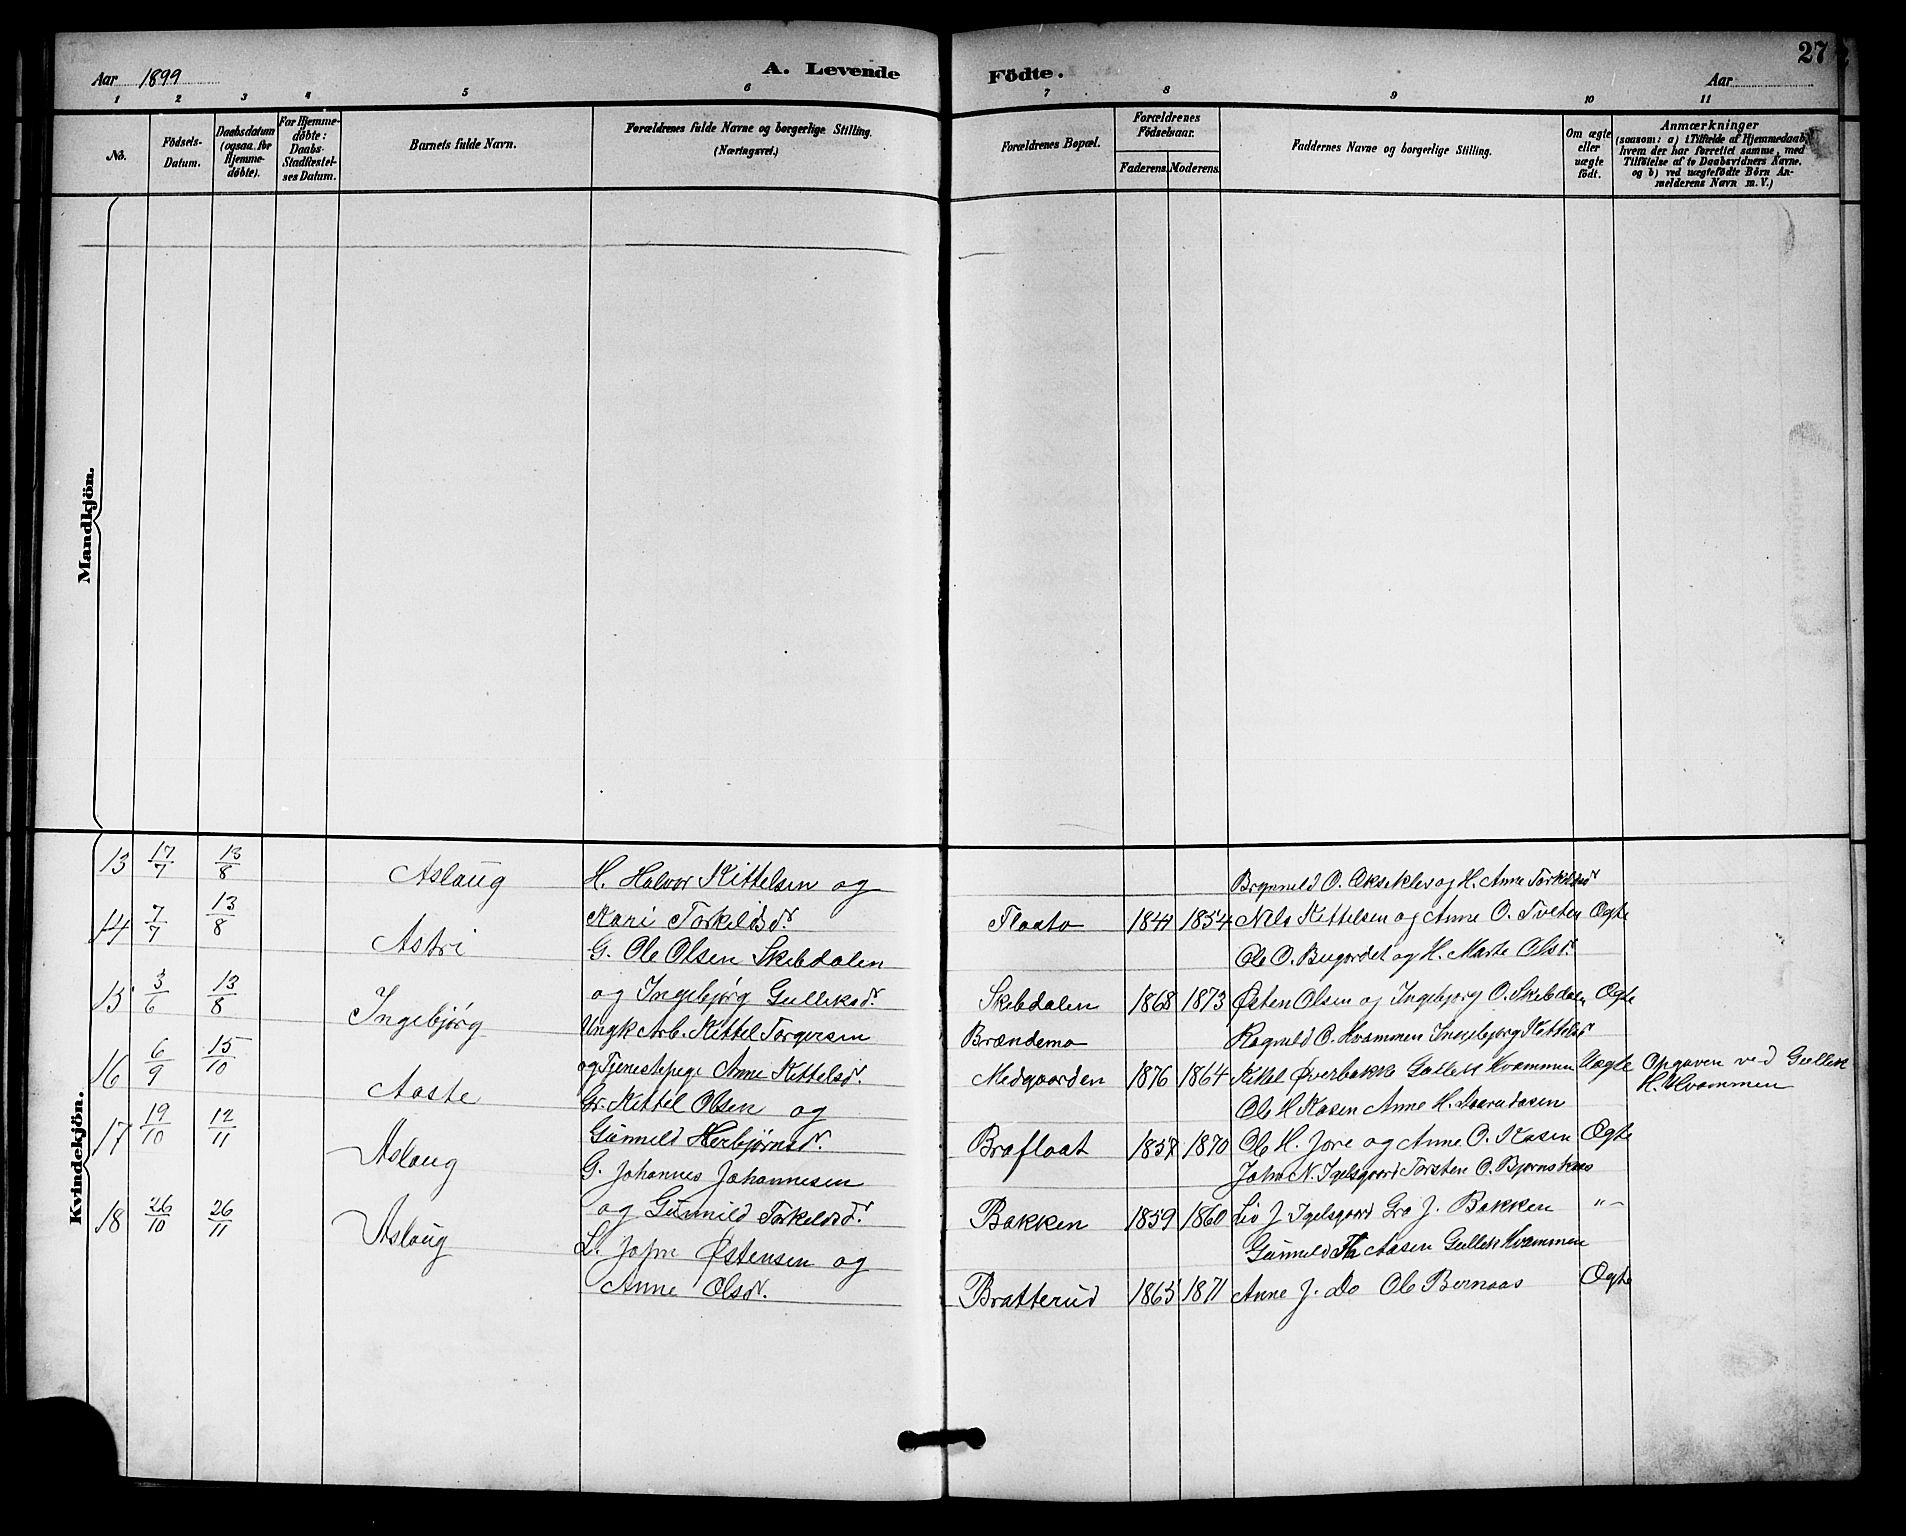 27
Aar 1899
A. Levende Födte.
Aar
1 2 3 4 5 6 7 8 9 10 11
No.
Födsels-Datum.
Daabsdatum (ogsaa for Hjemme-døbte).
For Hjemme-døbte: Daabs-Stadfæstel-ses Datum.
Barnets fulde Navn.
Forældrenes fulde Navne og borgerlige Stilling.
(Næringsvei.)
Forældrenes Bopæl.
Forældrenes Födselsaar.
Faderens. Moderens.
Faddernes Navne og borgerlige Stilling.
Om ægte eller uægte födt.
Anmærkninger
(saasom: a) i Tilfælde af Hjemmedaab, hvem der har forrettet samme, med Tilföielse af to Daabsvidners Navne, og b) ved uægtefödte Börn Anmelderens Navn m. V.)
Mandkjön.
Kvindekjön.
13 17/7 13/8 Aslaug H. Halvor Kittelsen og Brynuld O. Oksekleiv og H. Anne Torkildsdr
Kari Torkildsdr. Flaato 1841 1854 Nils Kittelsen og Anne O. Tveten Ægte
14 7/7 13/8 Astri G. Ole Olsen Skebdalen Ole O. Bugordet og H. Marte Olsdr.
og Ingebjørg Gulliksdr. Skebdalen 1868 1873 Østen Olsen og Ingebjørg O. Skebdalen Ægte
15 3/6 13/8 Ingebjørg Ungk. Arb. Kittel Torgersen Brændemo Ragnild O. Kvammen Ingebjørg Kittilsdr
og Tjenestepige Anne Kittelsdr. Medgaarden 1876 1864 Kittel Øverbakke Gullek Kvammen Uægte Opgaven ved Gullek H. Kvammen
16 6/9 15/10 Aaste Gr. Kittil Olsen og Ole H Kasen Anne H.
Gunnild Herbjørnsdr. Brafloat 1857 1870 Ole H. Jore og Anne O. Kasen Ægte
17 19/10 12/11 Aslaug G. Johannes Johannesen John N. Igelsgaard Torsten O. Bjørnskaas
og Gunnild Torkeldsdr. Bakken 1859 1860 Liv J Igelsgaard Gro J. Bakken "–
18 26/10 26/11 Aslaug L. John Østensen og Gunnild Th Aasen Gullek Kvammen
Anne Olsdr. Bratterud 1865 1871 Anne J. Do Ole Bernaas Ægte